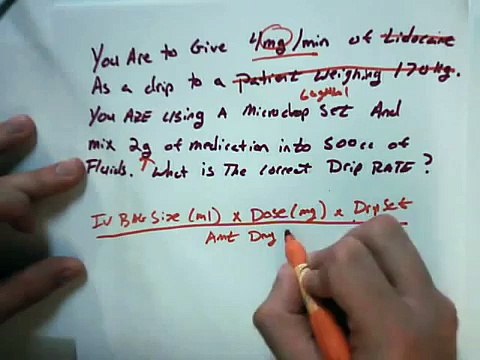 You Are to Give 4mg/min of Lidocaine
As a drip to a patient weighing 170 kg.
60gtt/ml
You ARE Using A Microdrop Set And
mix 2g of medication into 500cc of
Fluids. What is The correct Drip RATE?
IV BAG Size (ml) x Dose (mg) x Drip Set
Amt Drug